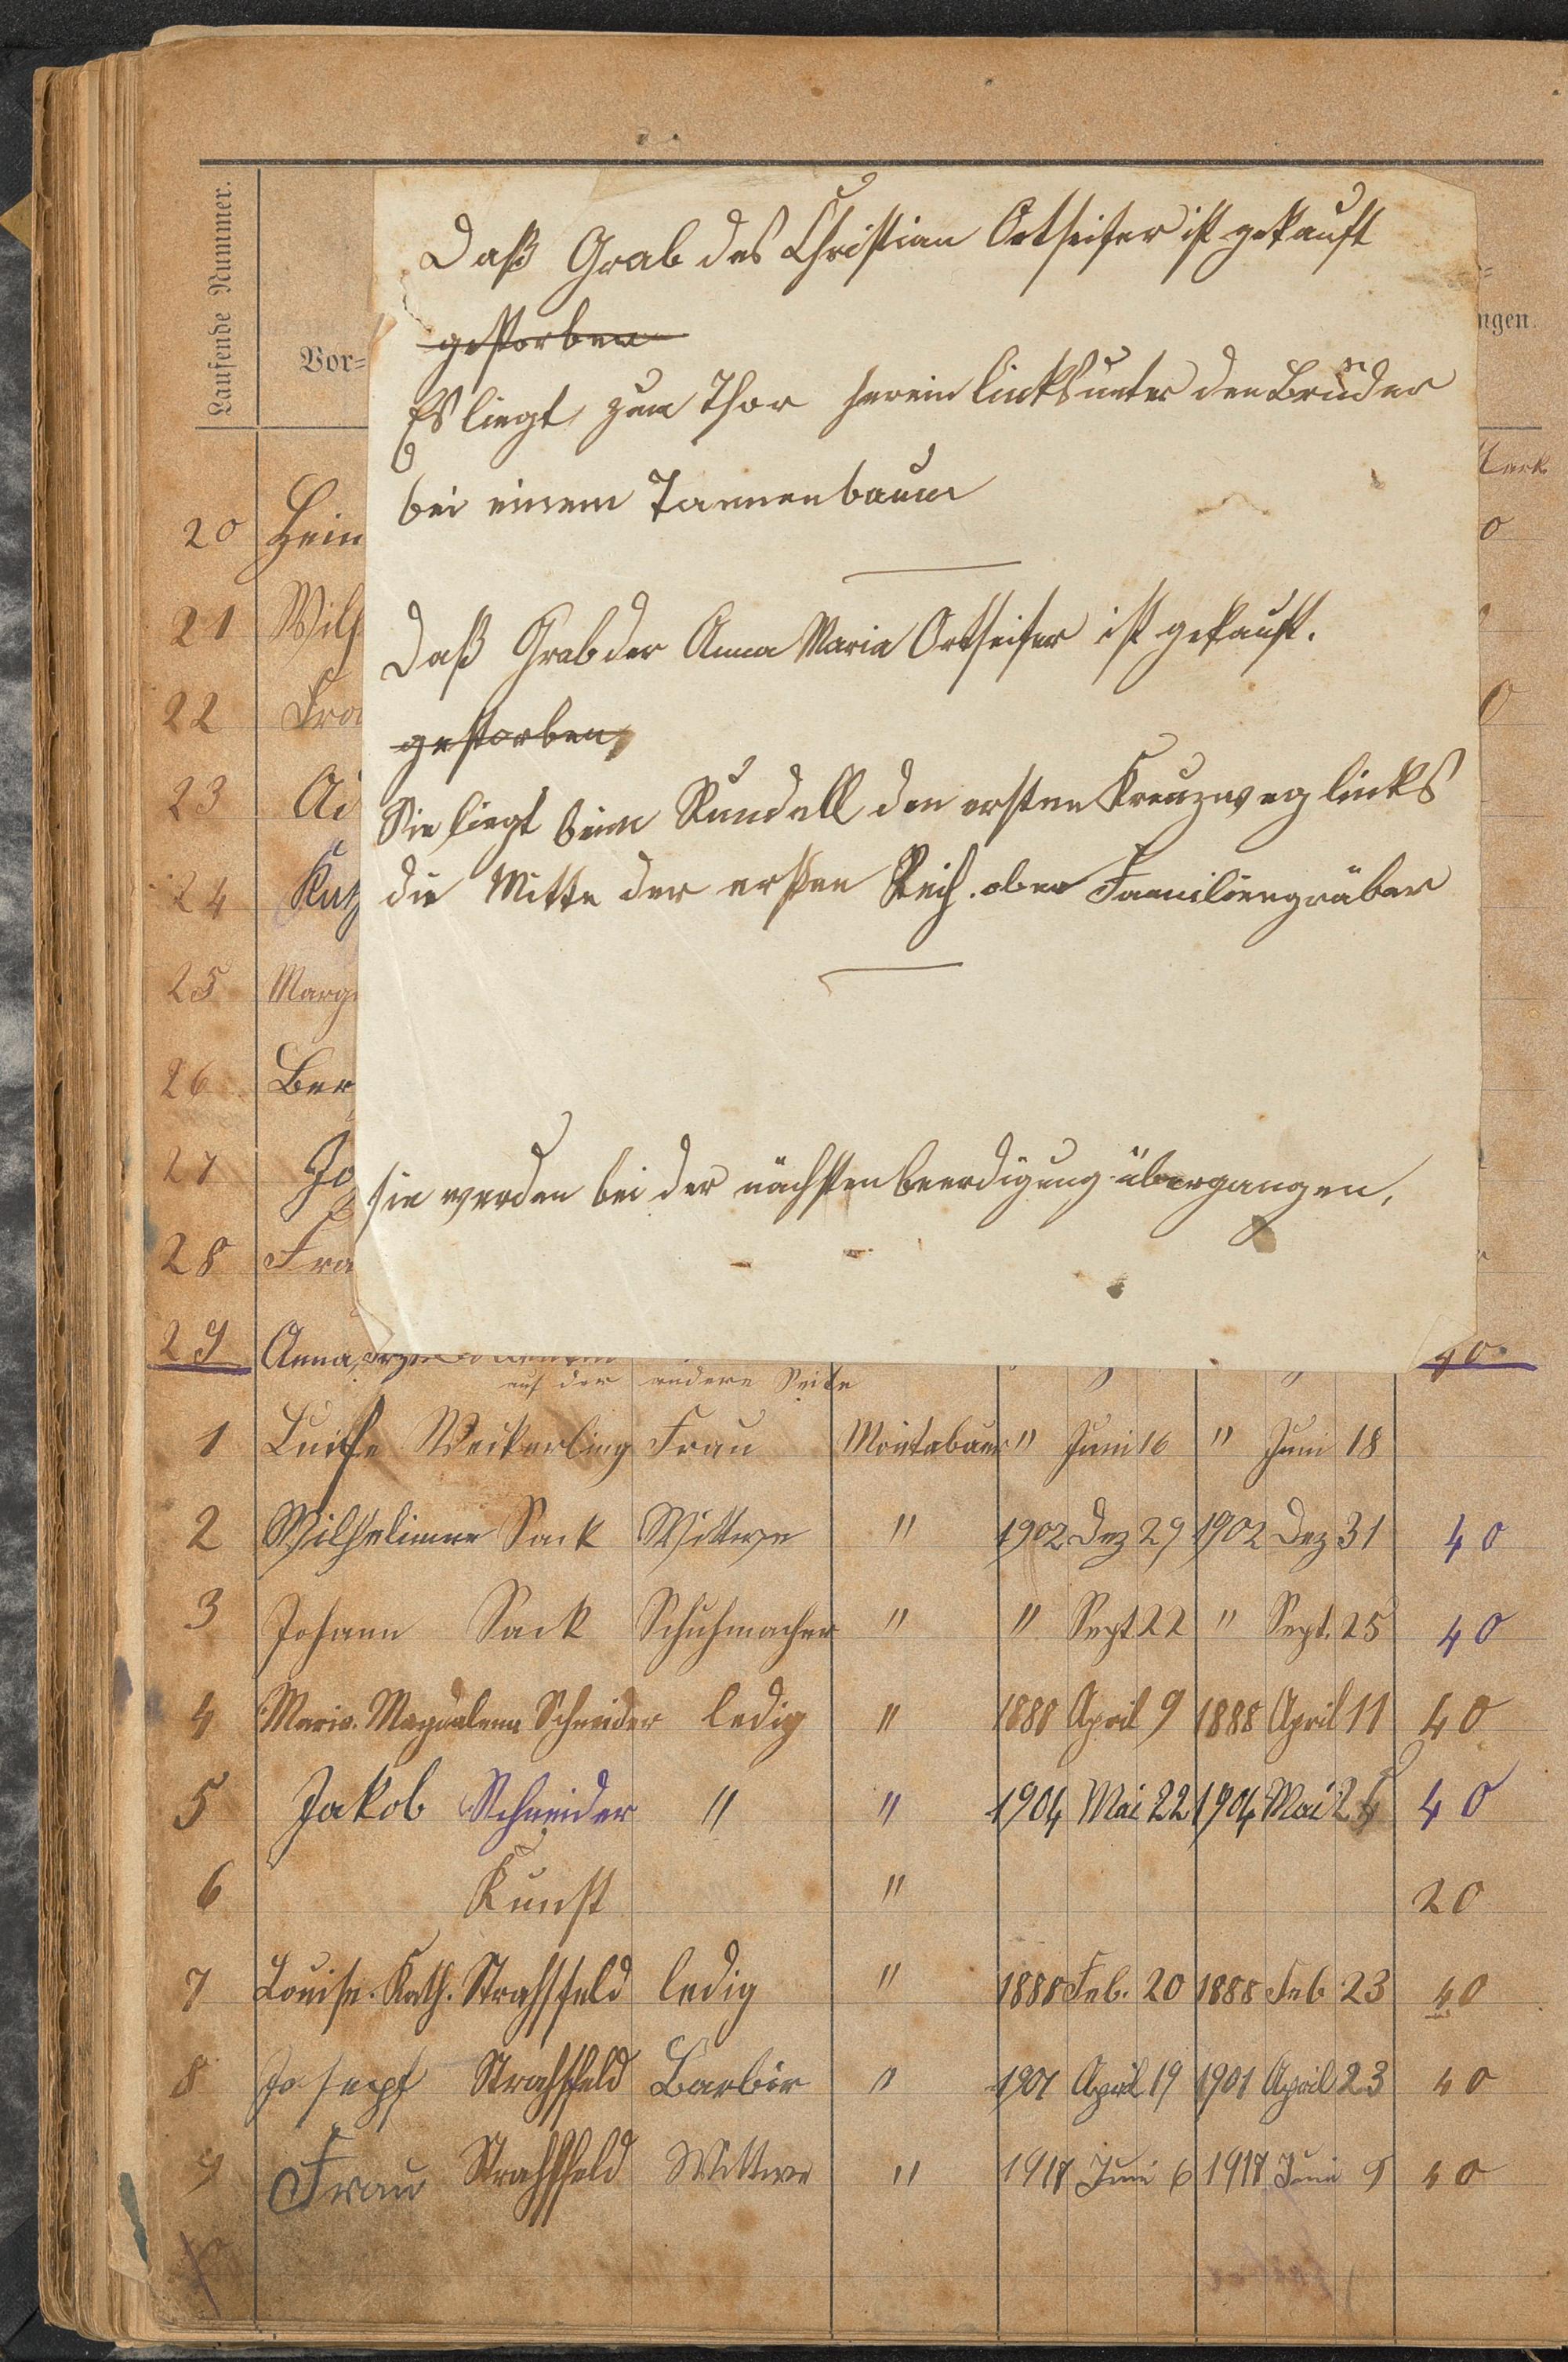 Laufende Nummer.
Vor-
ngen.
Daß Grab des Christian Ortseifer ist gekauft
gestorben
Es liegt zum Thor herein links unter den Brüder
bei einem Tannenbaum
Daß Grab der Anna Maria Ortseifer ist gekauft.
gestorben,
Sie liegt beim Rundell den ersten Kreuzweg links
die Mitte der ersten Reih. oben Familiengräber
sie werden bei der nächsten Beerdigung übergangen,
Mark
20 Hein 0
21 Wilh
22 0
23 Ad
24
25 Marg
26 Ber
27 Jo
28 Fra
29 Anna 40
auf der andere Seite
1 Luise Weikerling Frau Montabaur " Juni 16 " Juni 18
2 Wilhelimne Sack Wittwe " 1902 Dez 29 1902 Dez 31 40
3 Johann Sack Schuhmacher " " Sept 22 " Sept. 25 40
4 Maria. Magdalena Schneider ledig " 1888 April 9 1888 April 11 40
5 Jakob Schneider " " 1904 Mai 22 1904 Mai 40
6 Kunst " 20
7 Louise. Kath. Strahlfeld ledig " 1888 Feb. 20 1888 Feb 23 40
8 Josepf Strahlfeld Barbir " 1901 April 19 1901 April 23 40
9 Frau Strahlfeld Wittwe " 1917 Juni 6 1917 Juni 9 40